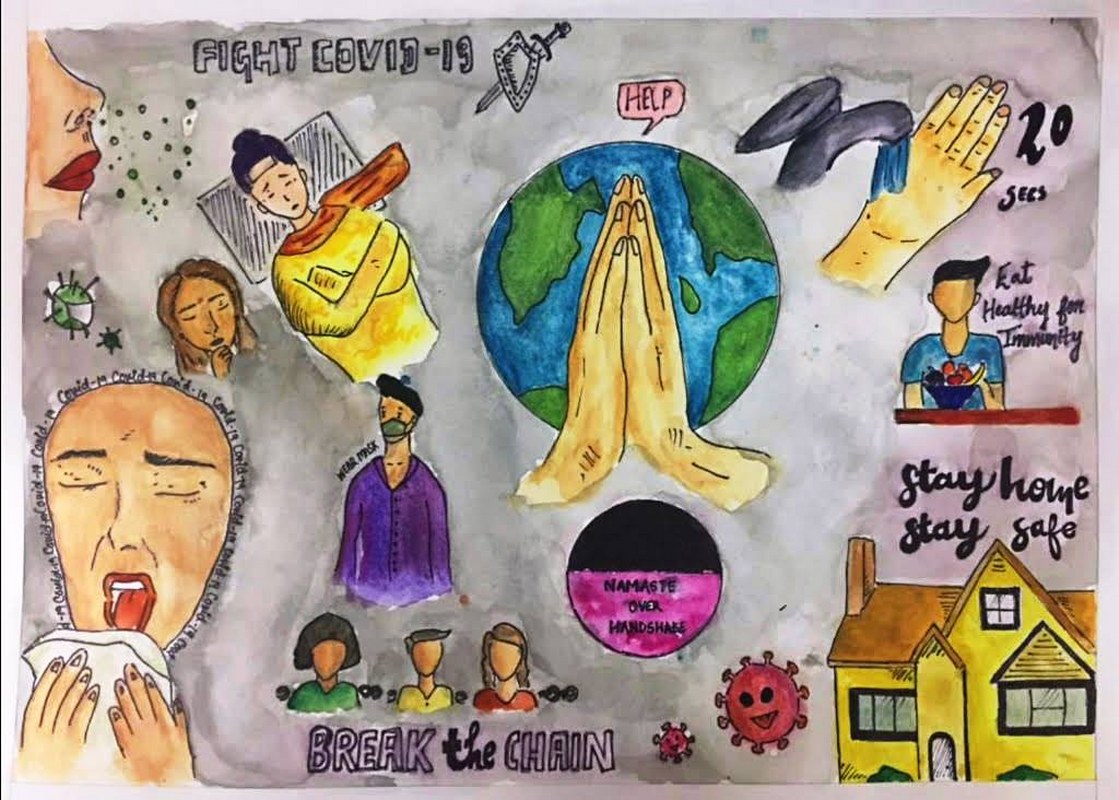 FIGHT COVID-19
HELP
20
SECS
Eat
Healthy for
Immunity
Covid-19 Covid-19 Covid-19 Covid-19 Covid-19 Covid-19 Covid-19 Covid-19
WEAR MASK
Stay home
stay safe
NAMASTE
OVER
HANDSHAKE
BREAK the CHAIN